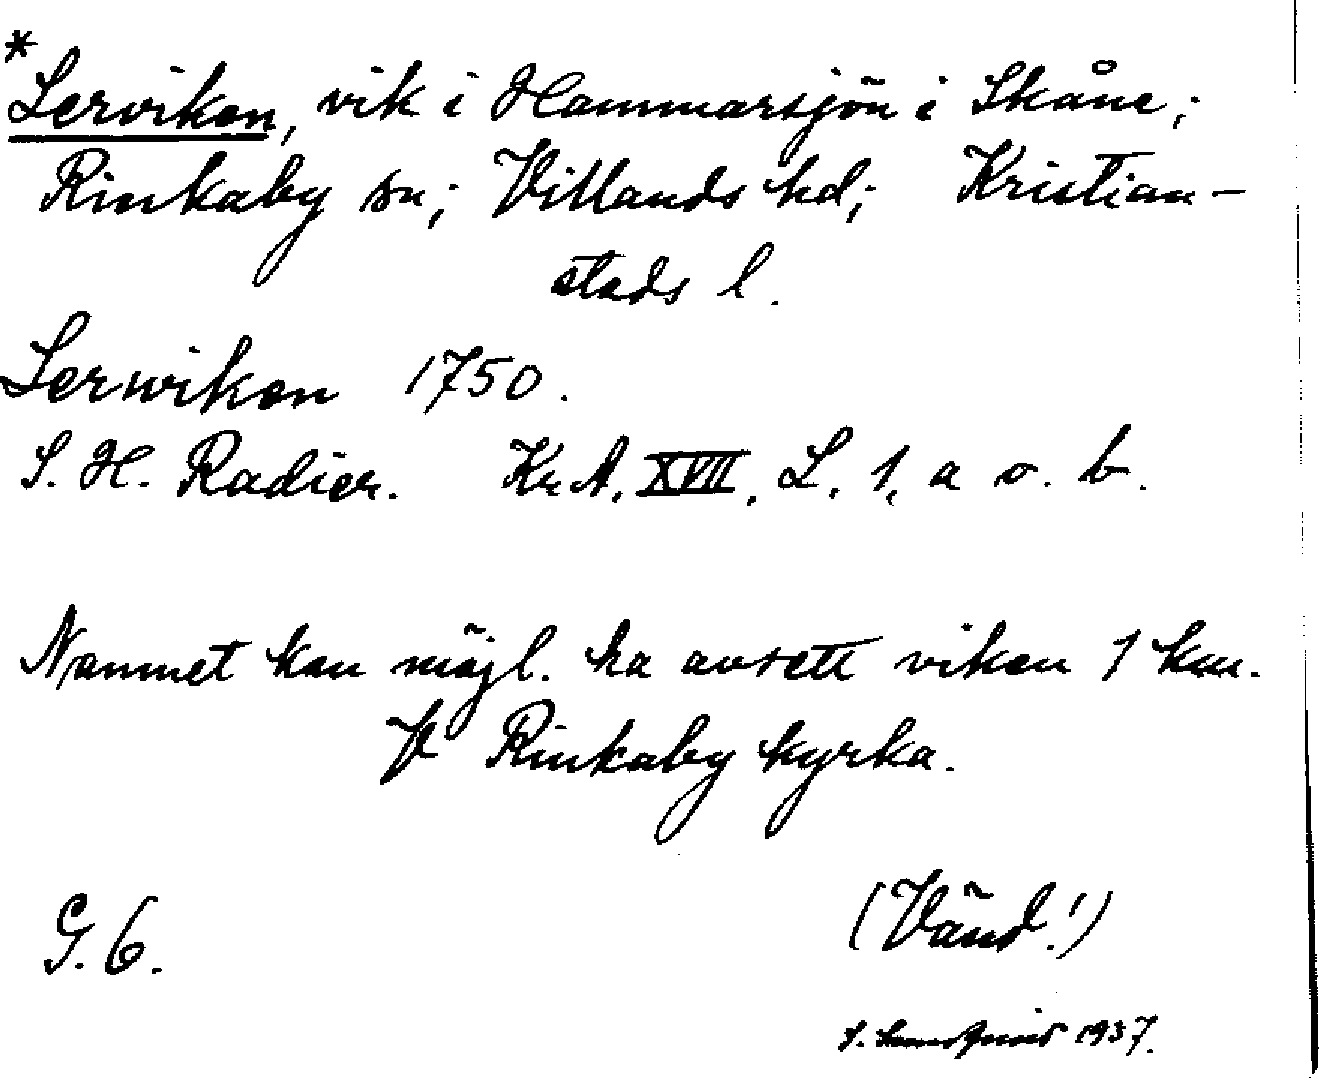 *
Lerviken, vik i Hammarsjön i Skåne;
Rinkaby sn; Villands hd; Kristian-
stads l.
Lerwiken 1750.
S. H. Radier. Kr.A. XVII. L. 1, a o. b.
Namnet kan möjl. ha avsett viken 1 km.
fr Rinkaby kyrka.
(Vänd!)
G. 6.
1937.